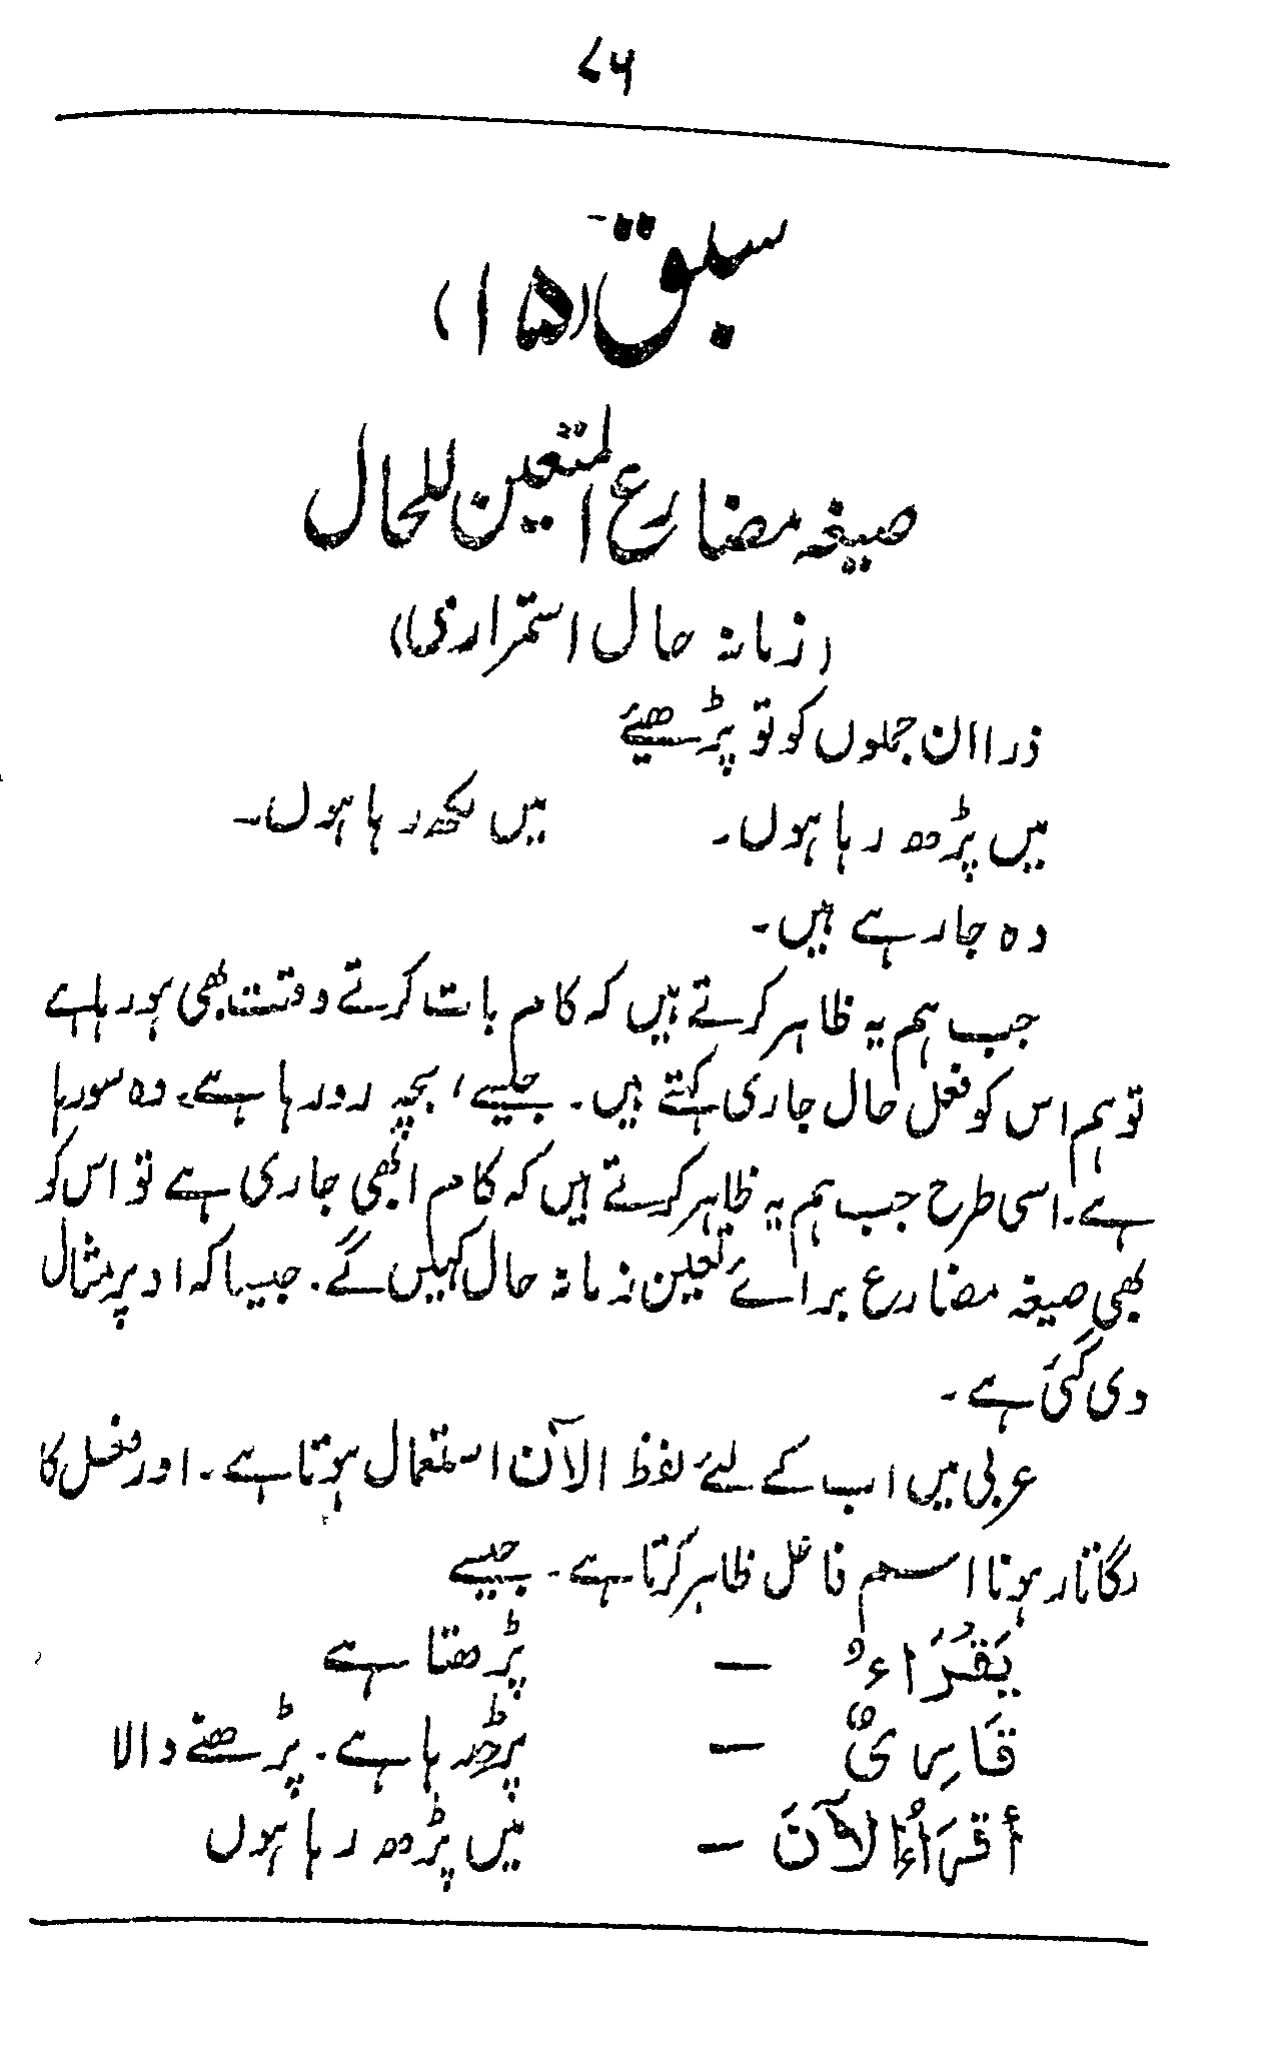 ۷۶
سبق (۱۵)
صیغہ مضارع المتعین للحال
(زمانہ حال استمراری)
ذرا ان جملوں کو تو پڑھیئے
میں پڑھ رہا ہوں۔ میں لکھ رہا ہوں۔
وہ جارہے ہیں۔
جب ہم یہ ظاہر کرتے ہیں کہ کام بات کرتے وقت بھی ہورہا ہے
تو ہم اس کو فعل حال جاری کہتے ہیں۔ جیسے، بچہ رورہا ہے، وہ سورہا
ہے۔ اسی طرح جب ہم یہ ظاہر کرتے ہیں کہ کام ابھی جاری ہے تو اس کو
بھی صیغہ مضارع برائے تعین زمانہ حال کہیں گے۔ جیسا کہ اوپر مثال
دی گئی ہے۔
عربی میں اب کے لیئے لفظ الآن استعمال ہوتا ہے۔ اور فعل کا
لگاتار ہونا اسم فاعل ظاہر کرتا ہے۔ جیسے
یَقْرَاءُ – پڑھتا ہے
قَارِیٌ – پڑھ رہا ہے۔ پڑھنے والا
أقرَاءُ الآنَ – میں پڑھ رہا ہوں